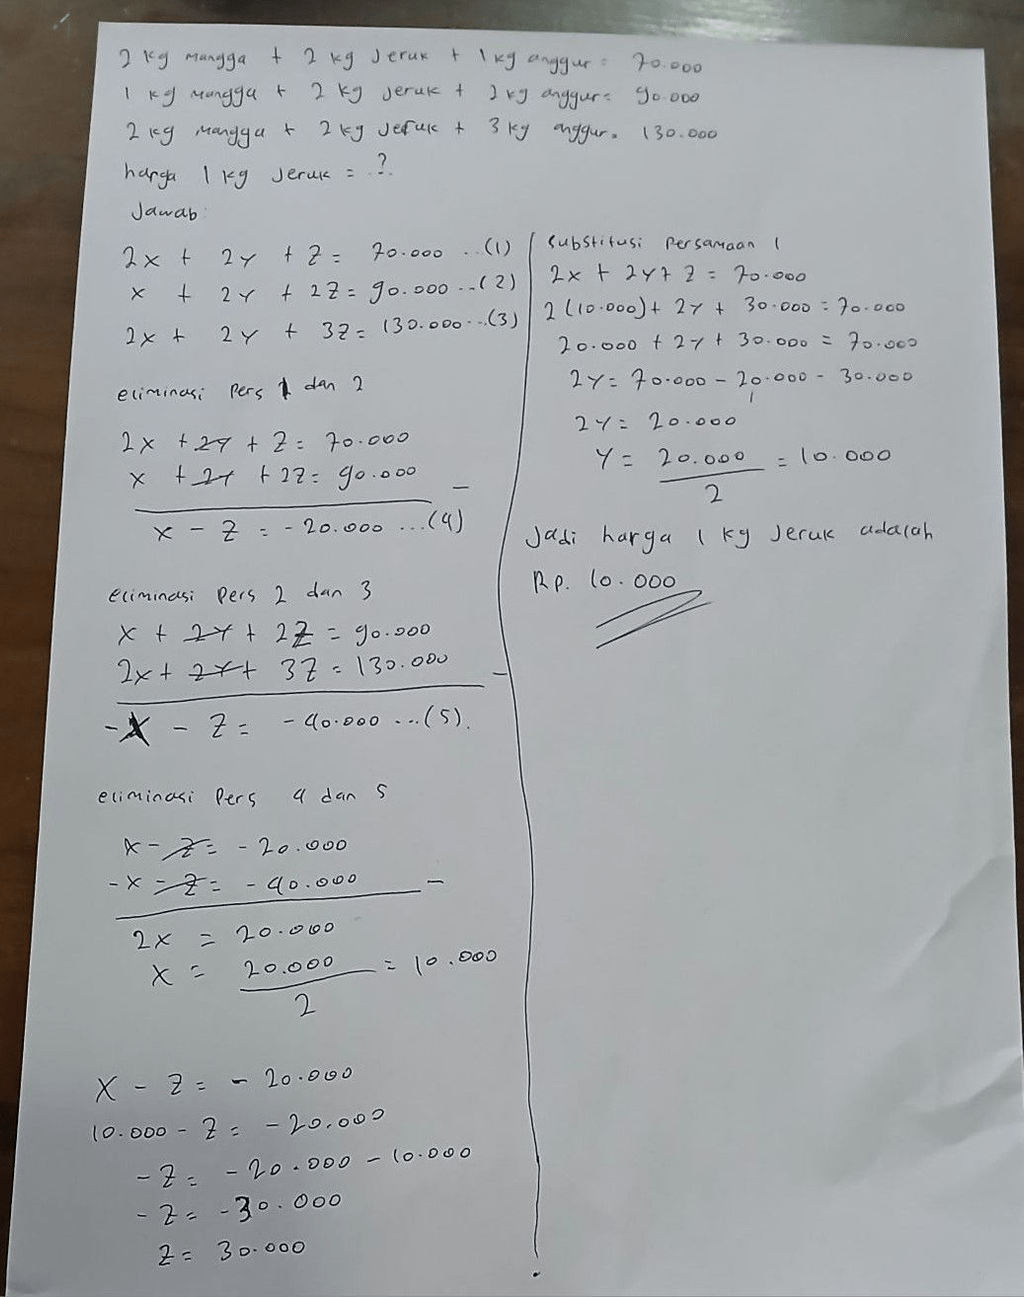 2 kg mangga + 2 kg Jeruk + 1 kg anggur = 70.000
1 kg mangga + 2 kg Jeruk + 2 kg anggur = 90.000
2 kg mangga + 2 kg Jeruk + 3 kg anggur = 130.000
harga 1 kg Jeruk = ..?
Jawab:
2x + 2y + z = 70.000 ...(1)
x + 2y + 2z = 90.000 ...(2)
2x + 2y + 3z = 130.000 ...(3)
eliminasi Pers 1 dan 2
2x + 2y + z = 70.000
x + 2y + 2z = 90.000 -
x - z = -20.000 ...(4)
eliminasi Pers 2 dan 3
x + 2y + 2z = 90.000
2x + 2y + 3z = 130.000 -
-x - z = -40.000 ...(5).
eliminasi Pers 4 dan 5
x - z = -20.000
-x - z = -40.000 -
2x = 20.000
x = 20.000 = 10.000
2
x - z = -20.000
10.000 - z = -20.000
-z = -20.000 - 10.000
-z = -30.000
z = 30.000
Substitusi Persamaan 1
2x + 2y + z = 70.000
2(10.000) + 2y + 30.000 = 70.000
20.000 + 2y + 30.000 = 70.000
2y = 70.000 - 20.000 - 30.000
2y = 20.000
y = 20.000 = 10.000
2
Jadi harga 1 kg Jeruk adalah
Rp. 10.000